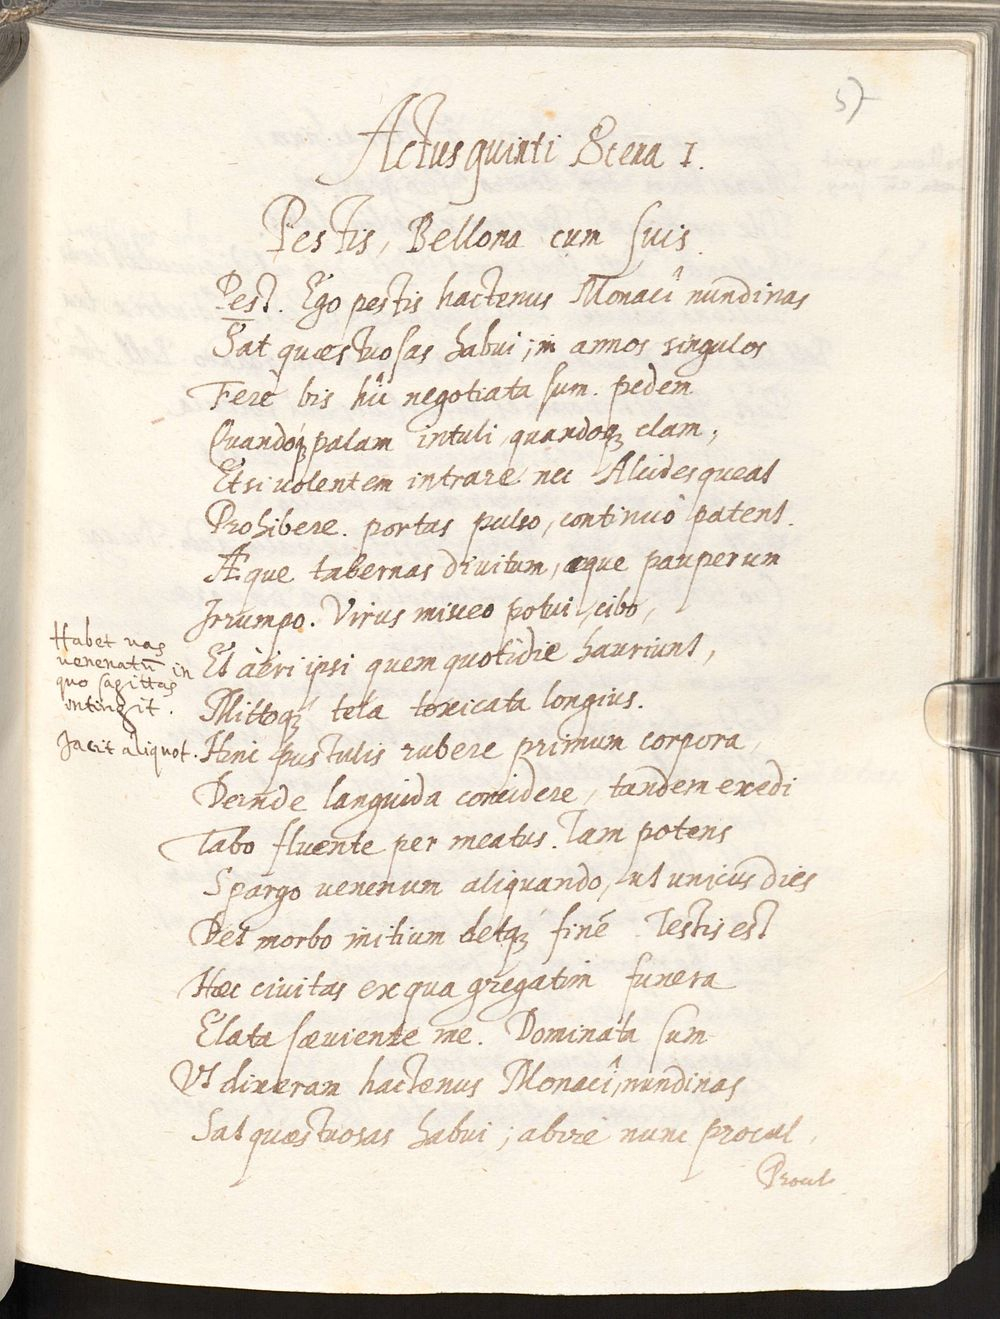 57
Actus quinti Scena I.
Pestis, Bellona cum suis.
Pest. Ego pestis hactenus Monacî nundinas
Sat quæstuosas habui; in annos singulos
Ferè bis hîc negotiata sum. pedem
Quandoq; palam intuli, quandoq; clam;
Et si volentem intrare nec Alcides queat
Prohibere. portas pulso, continuò patent.
Æque tabernas divitum, æque pauperum
Irrumpo. Virus misceo potui, cibo,
Et aëri ipsi quem quotidie hauriunt,
Habet vas
venenatū in
quo sagittas
intingit.
Mittoq; tela toxicata longius.
Jacit aliquot.
Hinc pustulis rubere primum corpora,
Deinde languida concidere, tandem exedi
Tabo fluente per meatus. Tam potens
Spargo venenum aliquando, ut unicus dies
Det morbo initium detq; finē. Testis est
Hæc civitas ex qua gregatim funera
Elata sæviente me. Dominata sum
Vt dixeram hactenus Monacî, nundinas
Sat quæstuosas habui; abire nunc procul,
Procul